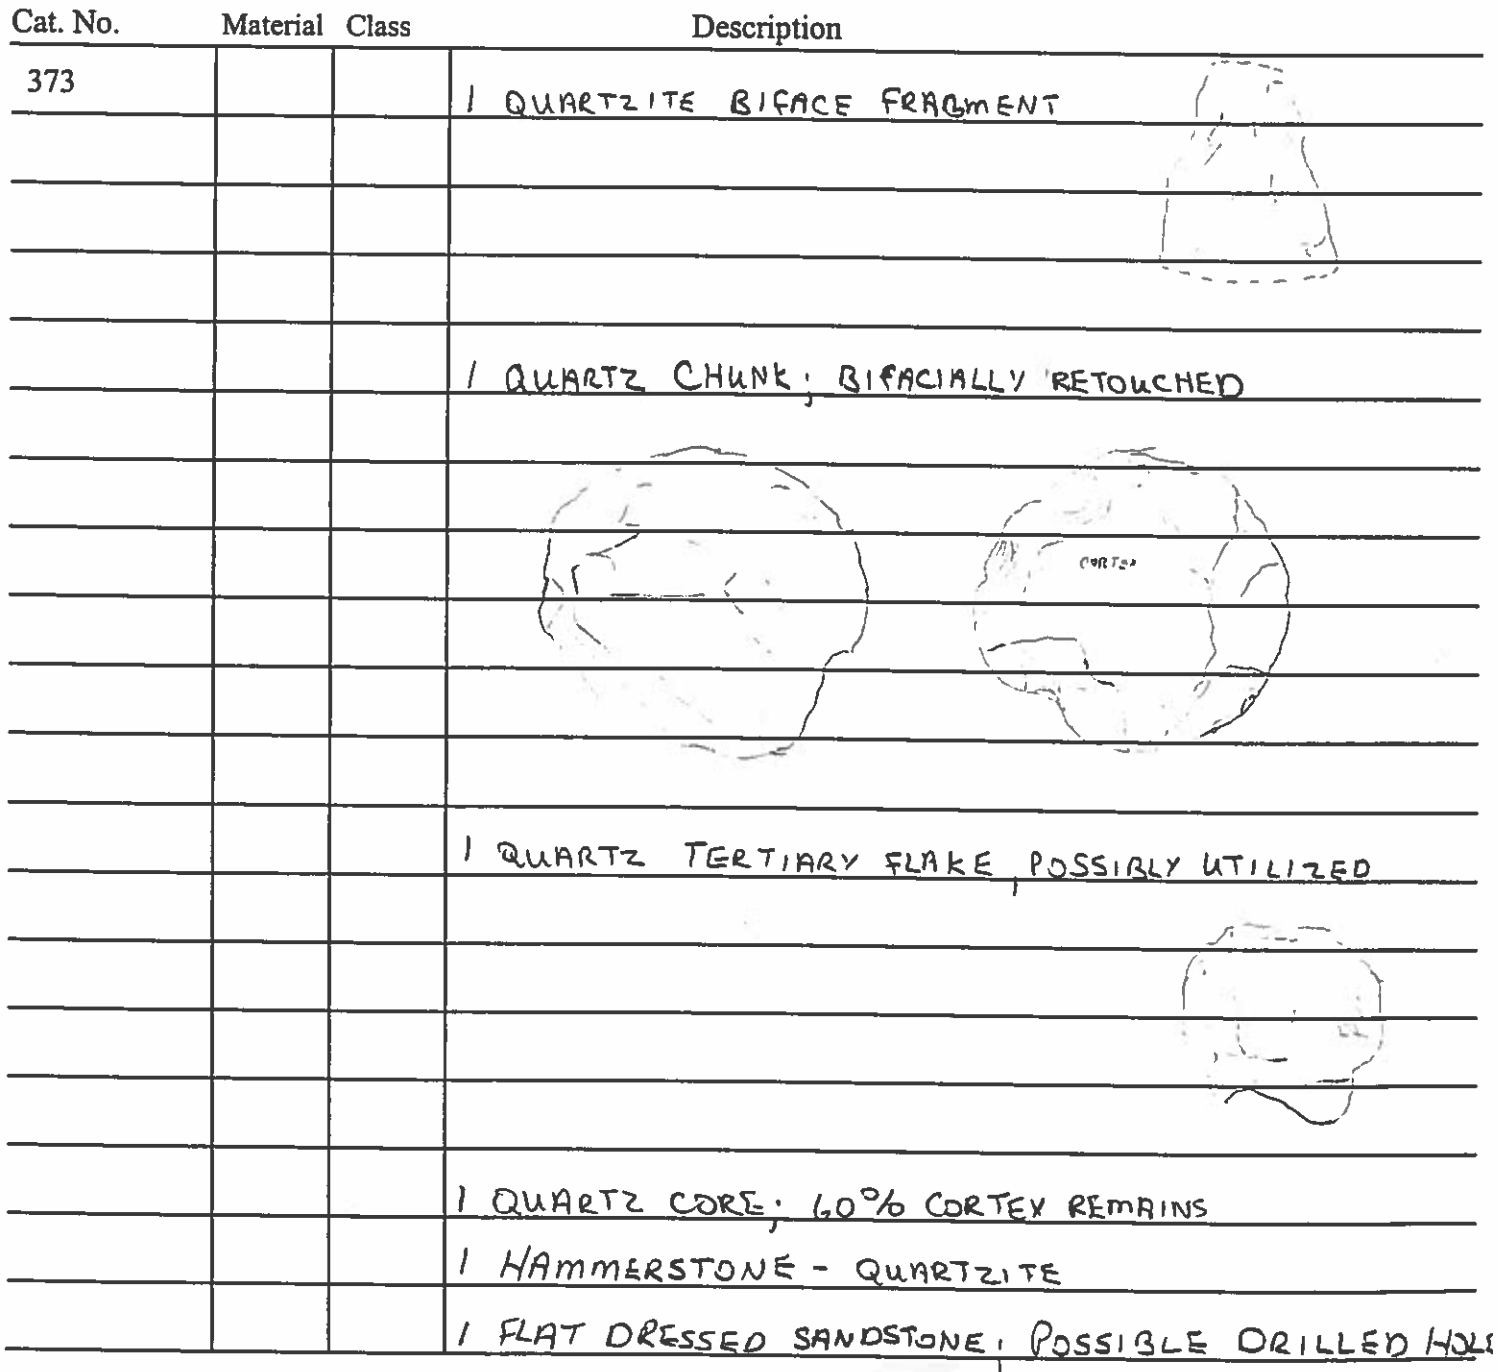 Cat. No. Material Class Description
373
1 QUARTZITE BIFACE FRAGMENT
1 QUARTZ CHUNK; BIFACIALLY RETOUCHED
CORTEX
1 QUARTZ TERTIARY FLAKE, POSSIBLY UTILIZED
1 QUARTZ CORE; 60% CORTEX REMAINS
1 HAMMERSTONE - QUARTZITE
1 FLAT DRESSED SANDSTONE; POSSIBLE DRILLED HOLE